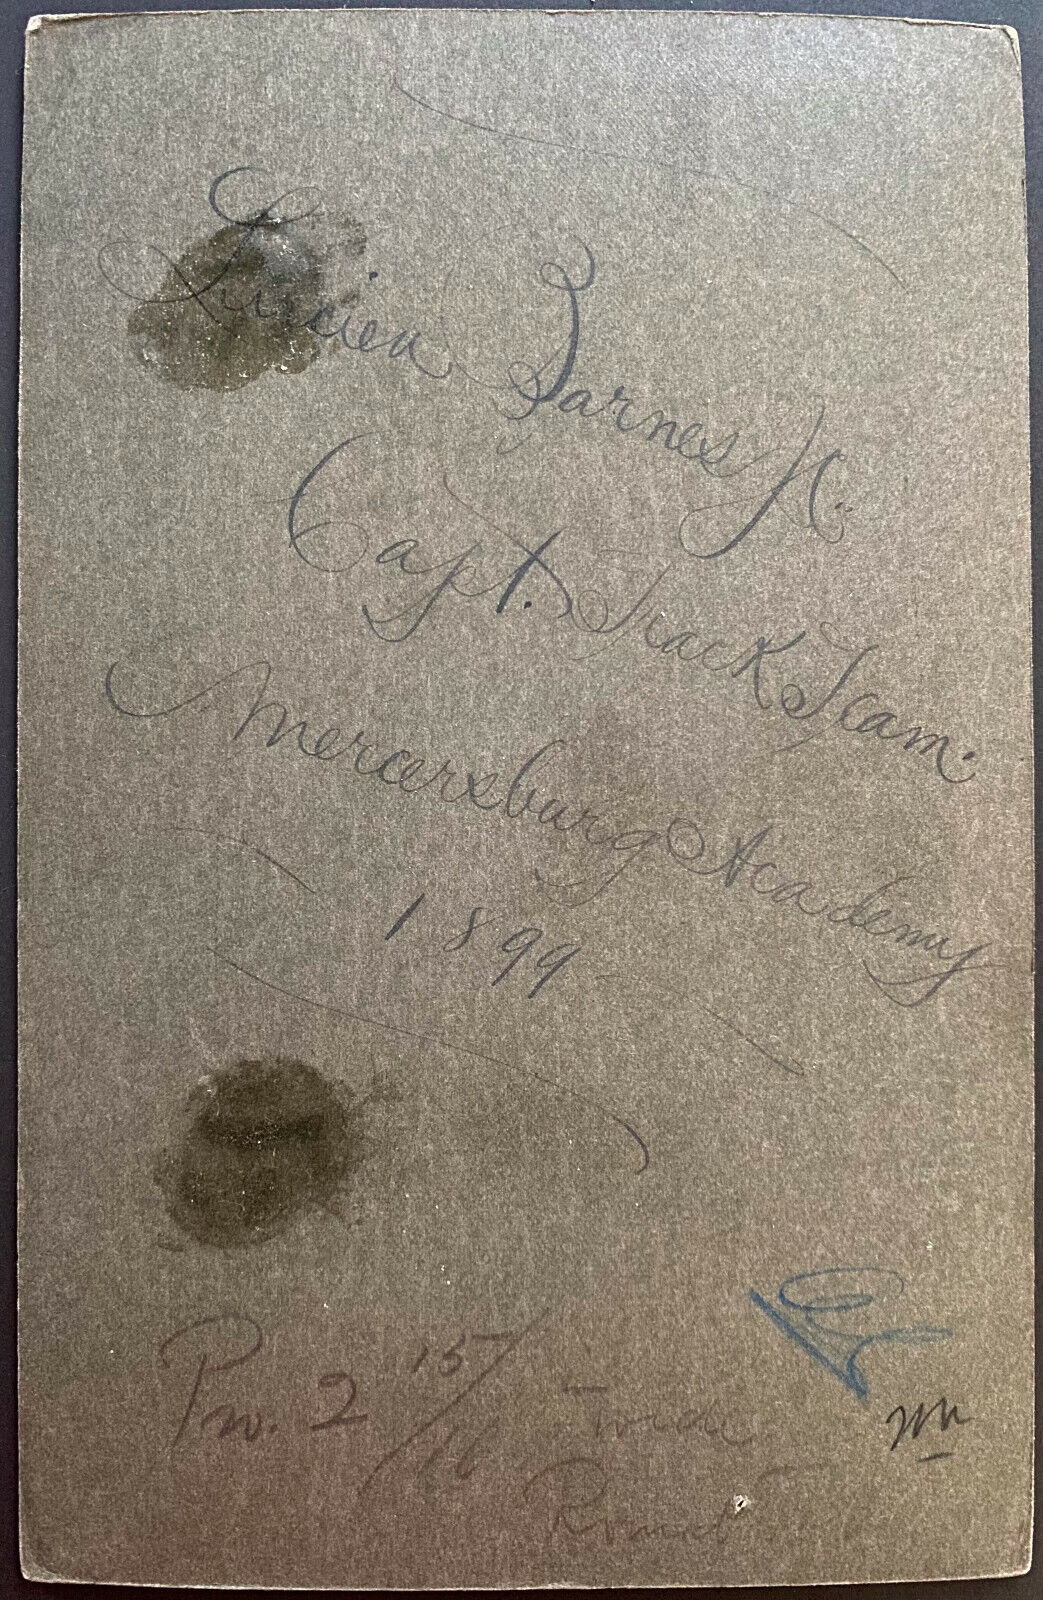 Lucien Barnes Jr.
Capt. Track Team.
Mercersburg Academy
1899
2 15/16 wide
Round